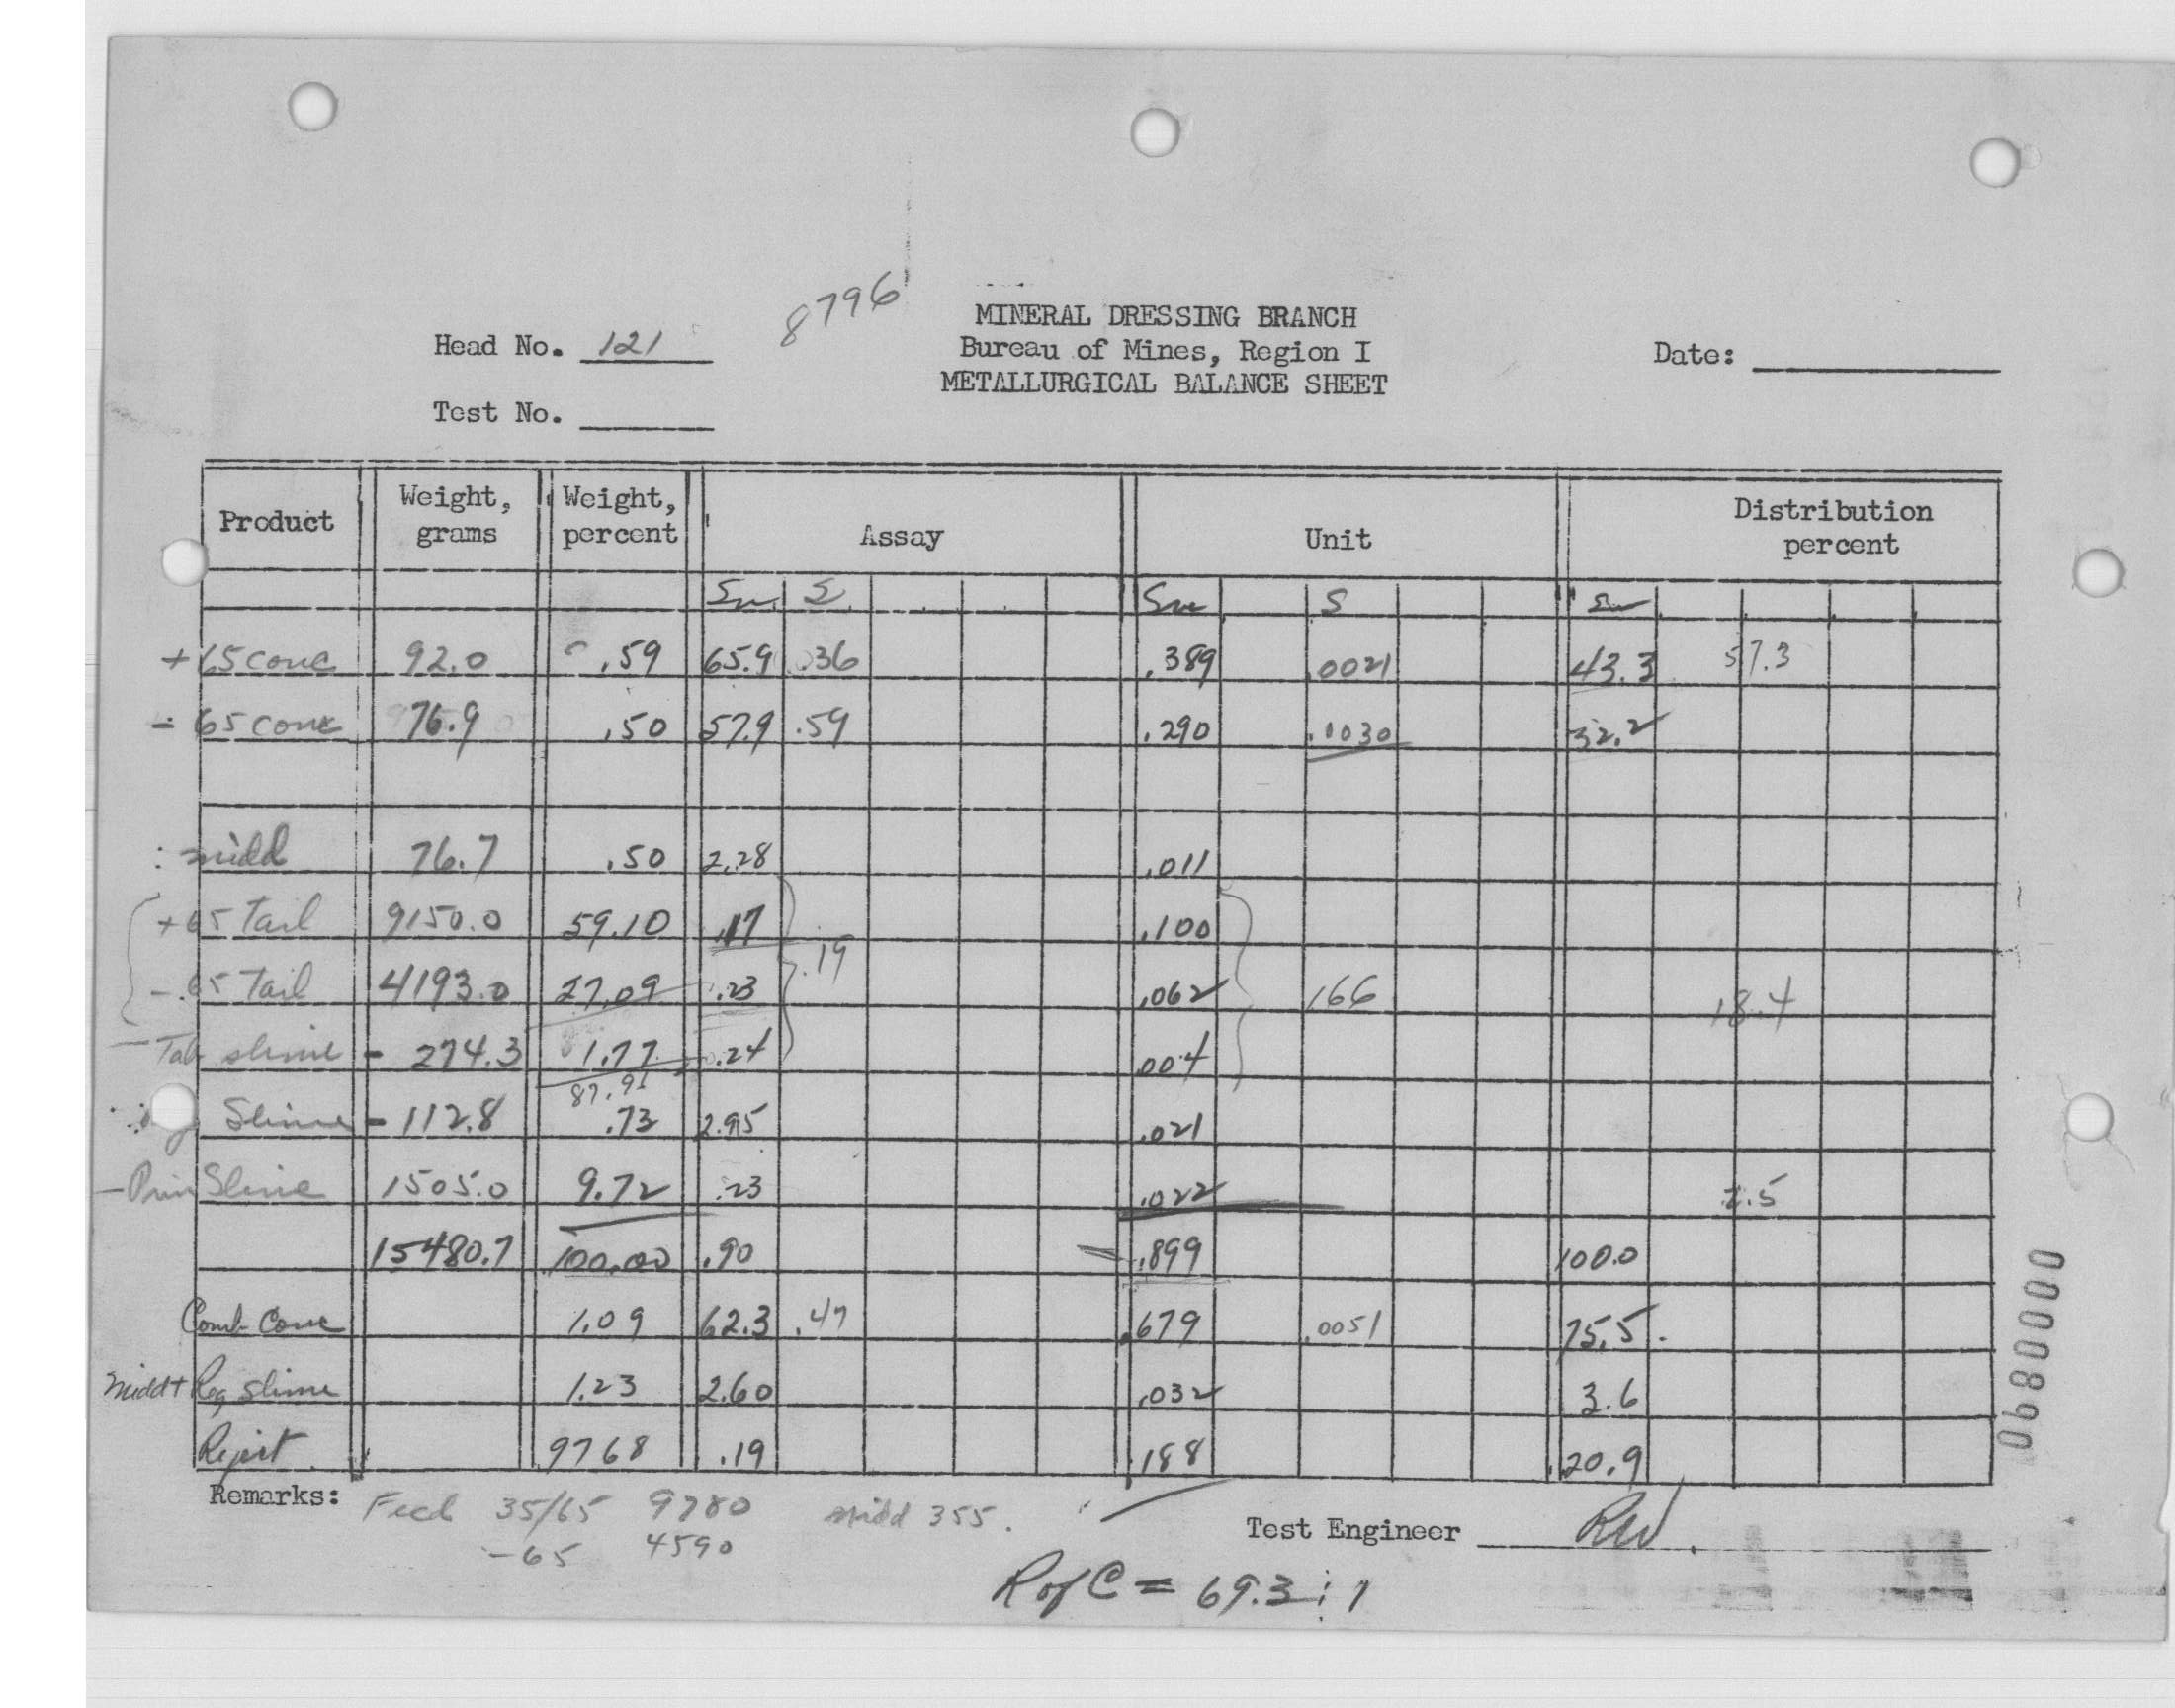 8796
MINERAL DRESSING BRANCH
Head No. 121
Bureau of Mines, Region I
Date:
METALLURGICAL BALANCE SHEET
Test No.
Product Weight, grams Weight, percent Assay Unit Distribution percent
Sn S Sn S Sn
+65 conc 92.0 .59 65.9 .036 .389 .0021 43.3 57.3
- 65 conc 76.9 .50 57.9 .59 .290 .1030 32.2
midd 76.7 .50 2.28 .011
+65 Tail 9150.0 59.10 .17 .100
-65 Tail 4193.0 27.09 .23 .19 .062 166 18.4
Tab slime - 274.3 1.77 .24 .004
87.96
Slime - 112.8 .73 2.95 .021
- Prim Slime 1505.0 9.72 .23 .022 2.5
15480.7 100.00 .90 = .899 100.0
Comb Conc 1.09 62.3 .47 .679 .0051 75.5
Midd + Reg slime 1.23 2.60 .032 3.6
Reject 9768 .19 .188 20.9
Remarks: Feed 35/65 9780 midd 355.
-65 4590
Test Engineer RW.
R of C = 69.3 : 1
06800000